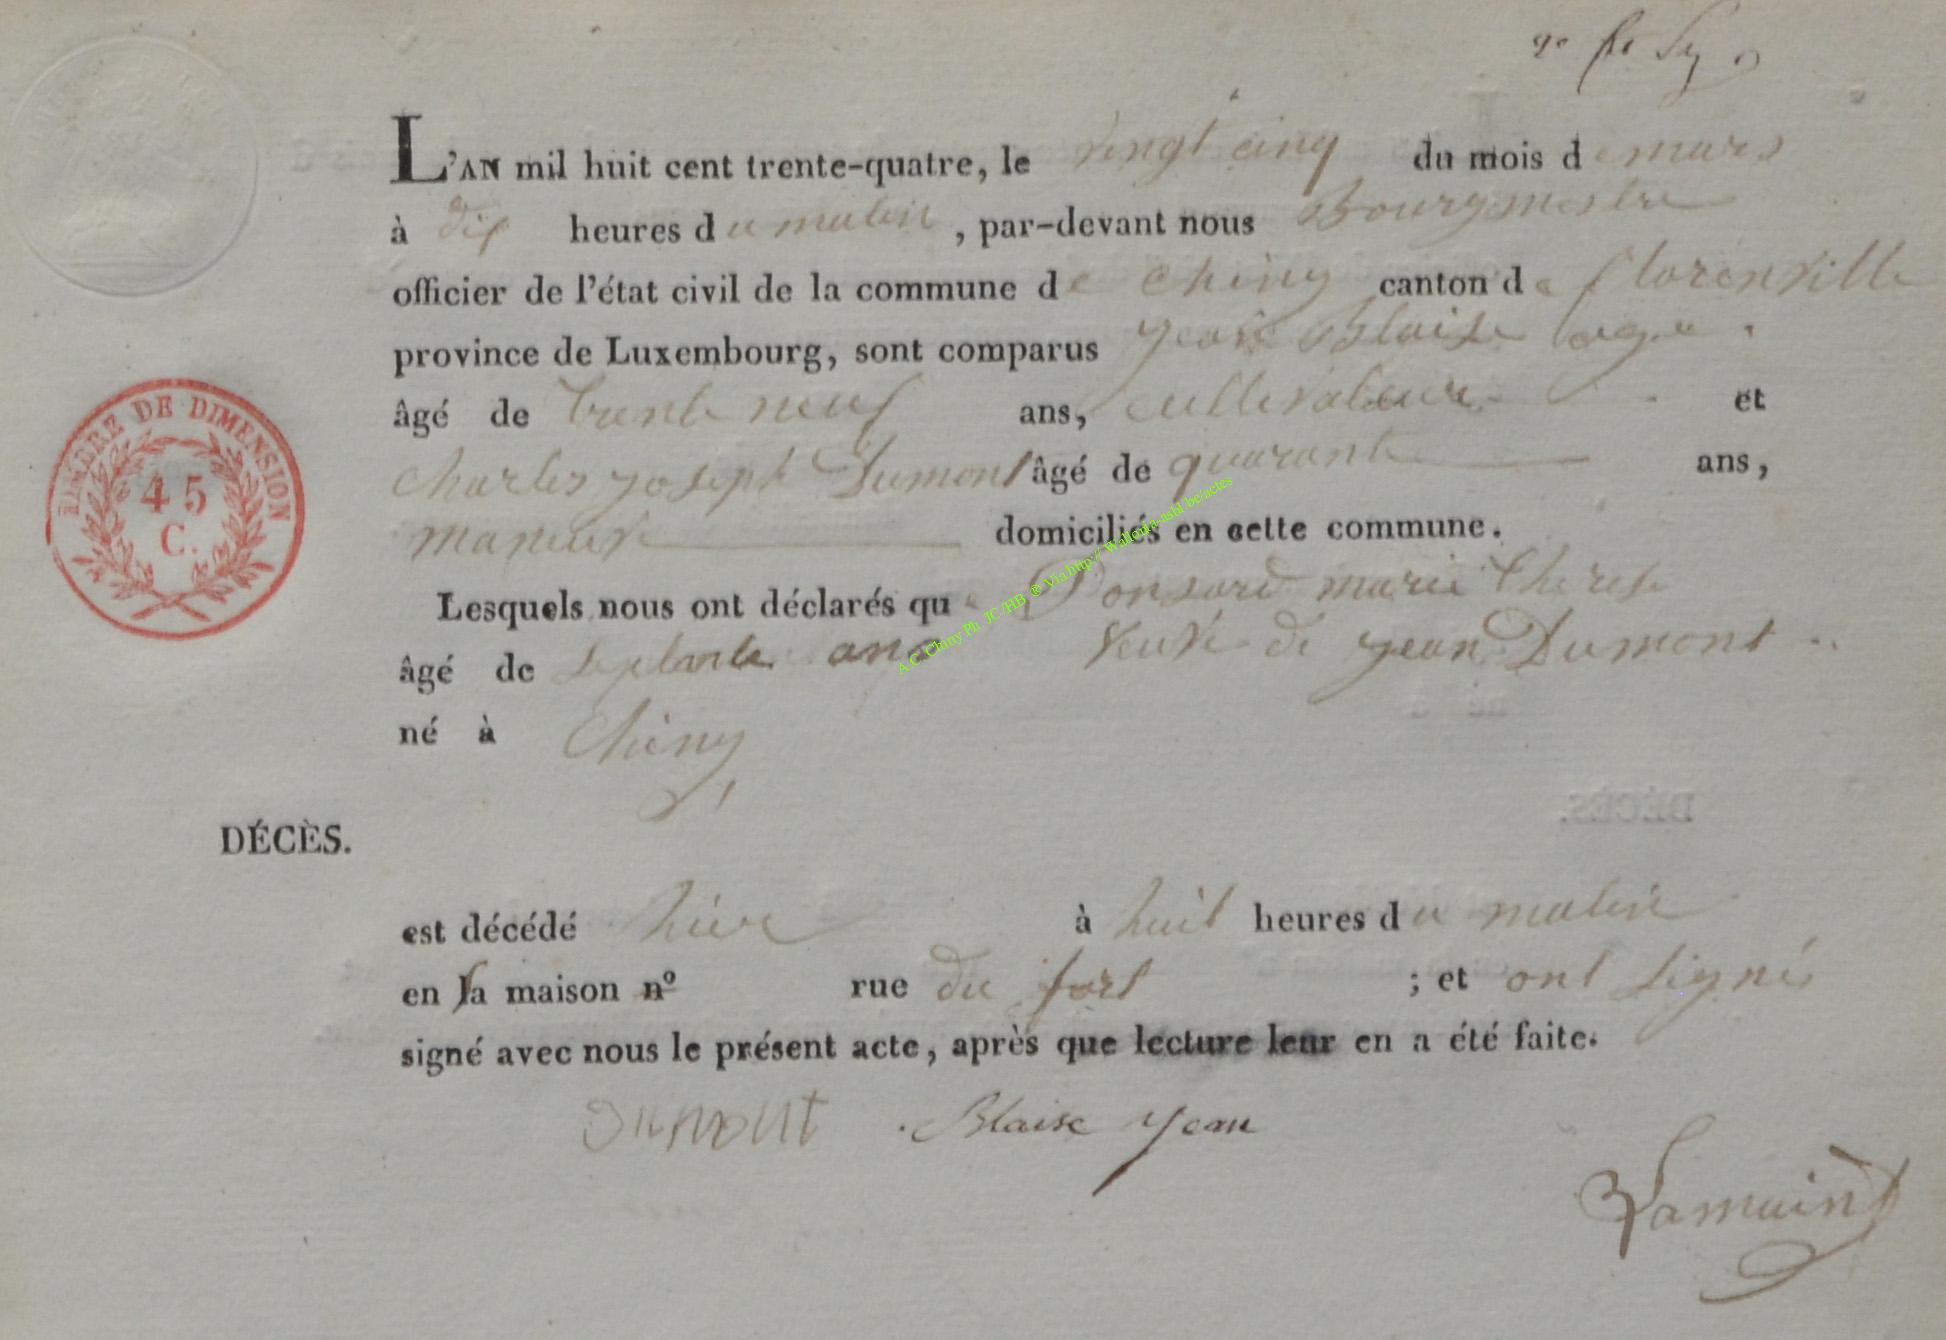 L'AN mil huit cent trente-quatre, le vingt cinq du mois de mars
à dix heures du matin, par-devant nous Bourgmestre
officier de l'état civil de la commune de Chiny canton de florenville
province de Luxembourg, sont comparus Jean Blaise
âgé de trente neuf ans, cultivateur et
Charles joseph Dumont âgé de quarante ans,
domiciliés en cette commune.
Lesquels nous ont déclarés que Ponsard marie therese
âgé de septante ans veuve de jean Dumont
né à Chiny
DÉCÈS.
est décédé hier à huit heures du matin
en sa maison nº rue du fort ; et ont signés
signé avec nous le présent acte, après que lecture leur en a été faite.
Dumont Blaise Jean
TIMBRE DE DIMENSION
45
C.
A.C. Chiny Ph. JC /HB ® Via http:// Wallonia-asbl.be/actes